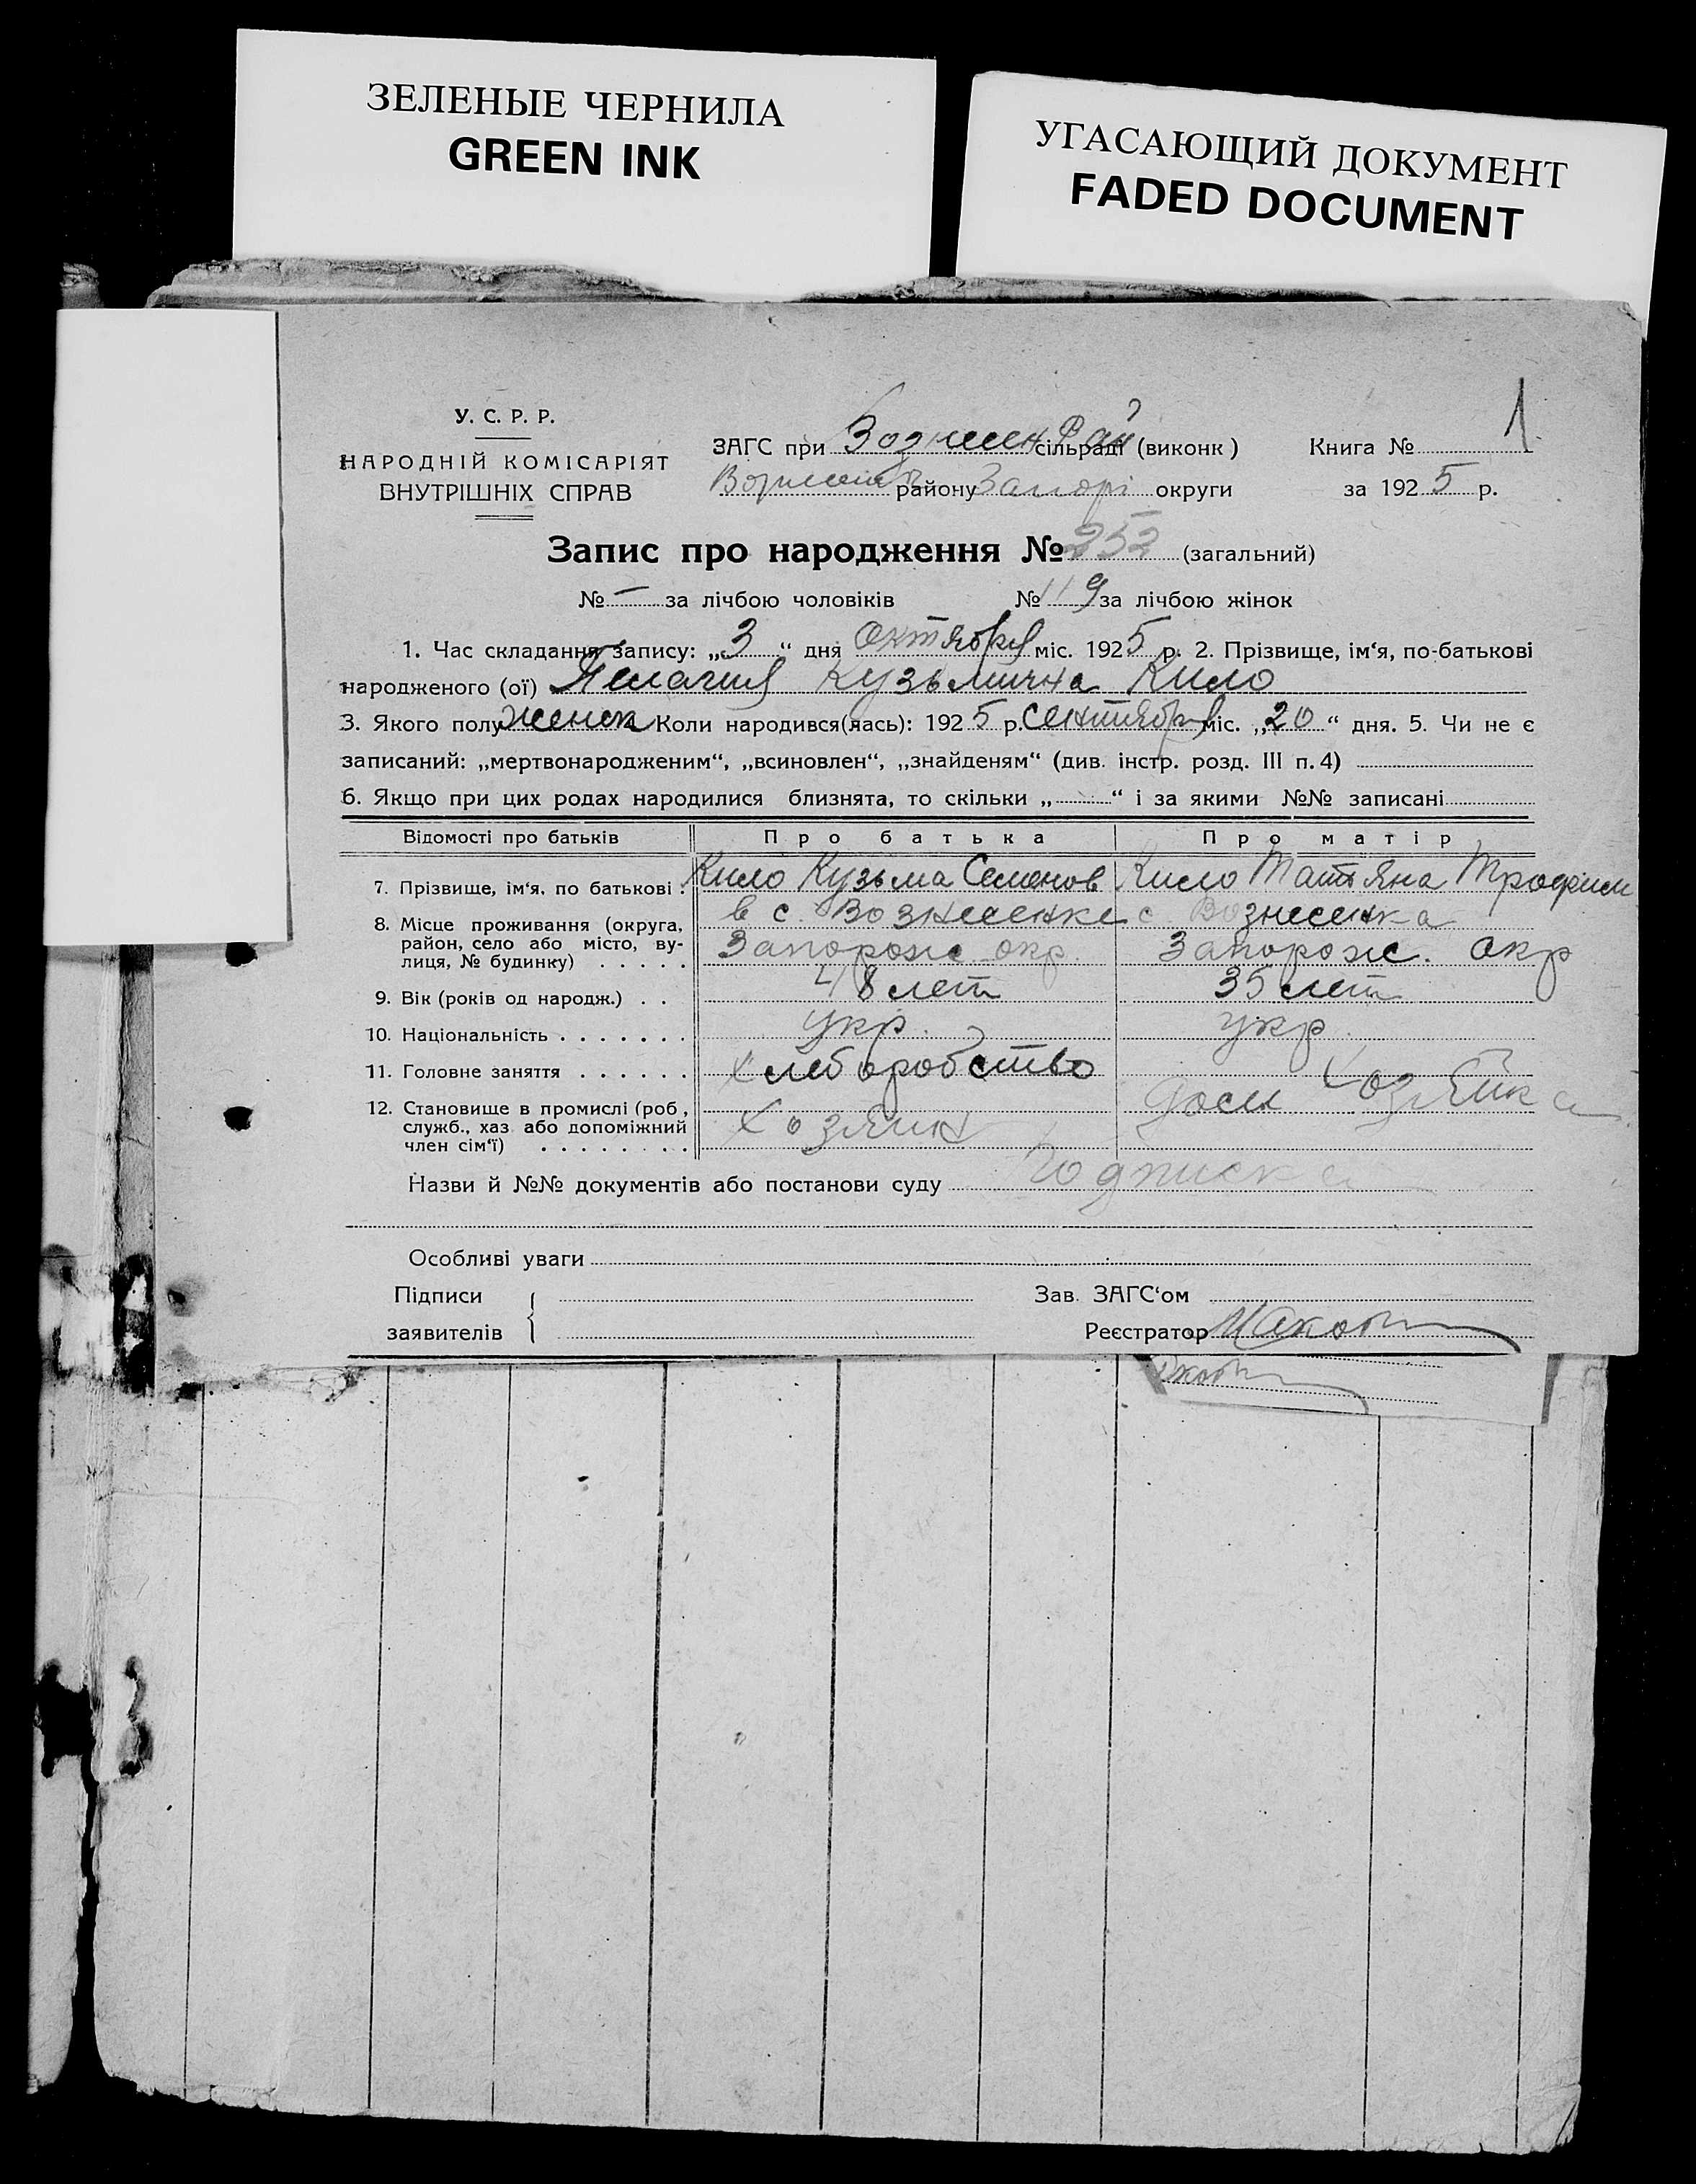 ЗЕЛЕНЫЕ ЧЕРНИЛА
GREEN INK
УГАСАЮЩИЙ ДОКУМЕНТ
FADED DOCUMENT
1
У. С. Р. Р.
НАРОДНІЙ КОМІСАРІЯТ
ВНУТРІШНІХ СПРАВ
ЗАГС при Вознесен Рай сільраді (виконк) Книга №
району Запорі округи за 1925 р.
Запис про народження № 252 (загальний)
№ — за лічбою чоловіків № 119 за лічбою жінок
1. Час складання запису: „3“ дня Октября міс. 1925 р. 2. Прізвище, ім‘я, по-батькові
народженого (ої) Пелагия Кузьминична Кило
3. Якого полу женск Коли народився(лась): 1925 р. сентября міс. „20“ дня. 5. Чи не є
записаний: „мертвонародженим“, „всиновлен“, „знайденям“ (див. інстр. розд. III п. 4)
6. Якщо при цих родах народилися близнята, то скільки „ “ і за якими №№ записані
Відомості про батьків Про батька Про матір
7. Прізвище, ім‘я, по батькові . Кило Кузьма Семенов Кило Татьяна Трофим
8. Місце проживання (округа, в с. Вознесенке с. Вознесенка
район, село або місто, ву- Запорож окр. Запорож. окр
лиця, № будинку) . . . . .
9. Вік (років од народж.) . . 48 лет 35 лет
10. Національність . . . . . . . укр. укр.
11. Головне заняття . . . . . . хлеборобство
12. Становище в промислі (роб., хозяин дом хозяйка
служб., хаз або допоміжний
член сім‘ї) . . . . . . . .
Назви й №№ документів або постанови суду подписка
Особливі уваги
Підписи Зав. ЗАГС‘ом
заявителів Реєстратор